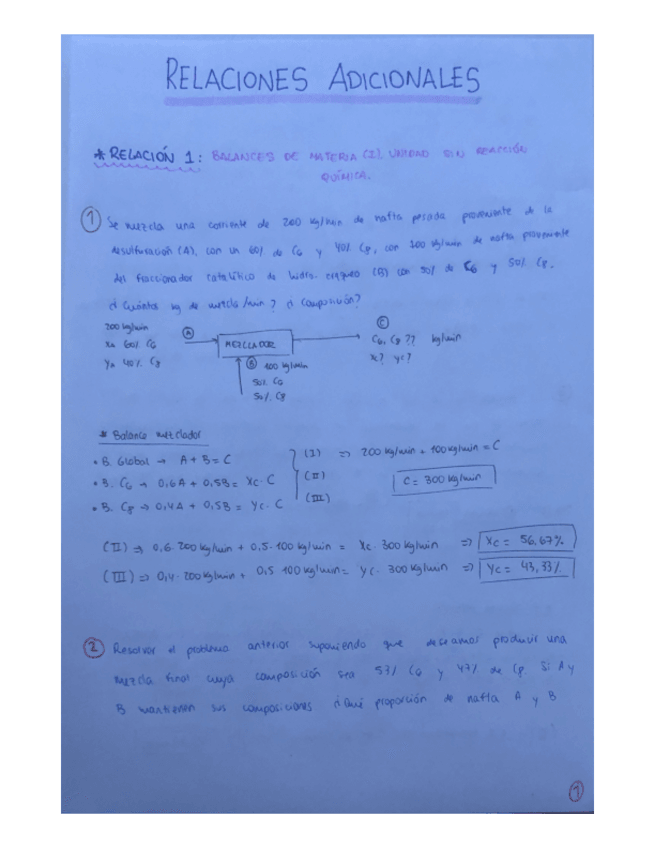 RELACIONES ADICIONALES
* RELACIÓN 1: BALANCES DE MATERIA (I). UNIDAD SIN REACCIÓN
QUÍMICA.
1 Se mezcla una corriente de 200 kg/min de nafta pesada proveniente de la
desulfuración (A), con un 60% de C6 y 40% C8, con 100 kg/min de nafta proveniente
del fraccionador catalítico de hidro. craqueo (B) con 50% de C6 y 50% C8.
¿Cuántos kg de mezcla/min? ¿Composición?
200 kg/min
XA 60% C6
YA 40% C8
A
MEZCLADOR
B 100 kg/min
50% C6
50% C8
C
C6, C8 ?? kg/min
Xc? Yc?
* Balance mezclador
• B. Global → A + B = C
• B. C6 → 0,6A + 0,5B = Xc · C
• B. C8 → 0,4A + 0,5B = Yc · C
(I) => 200 kg/min + 100 kg/min = C
(II)
(III)
C = 300 kg/min
(II) => 0,6 · 200 kg/min + 0,5 · 100 kg/min = Xc · 300 kg/min => Xc = 56,67%
(III) => 0,4 · 200 kg/min + 0,5 100 kg/min = Yc · 300 kg/min => Yc = 43,33%
2 Resolver el problema anterior suponiendo que deseamos producir una
mezcla final cuya composición sea 53% C6 y 47% de C8. Si A y
B mantienen sus composiciones ¿Qué proporción de nafta A y B
1